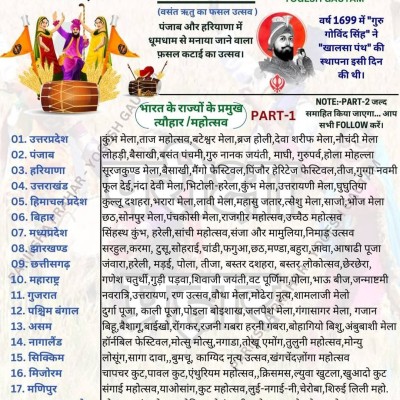 (वसंत ऋतु का फसल उत्सव )
पंजाब और हरियाणा में
धूमधाम से मनाया जाने वाला
फ़सल कटाई का उत्सव।
वर्ष 1699 में "गुरु
गोविंद सिंह" ने
"खालसा पंथ" की
स्थापना इसी दिन
की थी।
भारत के राज्यों के प्रमुख
त्यौहार /महोत्सव
PART-1
NOTE:-PART-2 जल्द
समाहित किया जाएगा... आप
सभी FOLLOW करें।
01. उत्तरप्रदेश कुंभ मेला,ताज महोत्सव,बटेश्वर मेला,ब्रज होली,देवा शरीफ मेला,नौचंदी मेला
02. पंजाब लोहड़ी,बैसाखी,बसंत पंचमी,गुरु नानक जयंती, माघी, गुरुपर्व,होला मोहल्ला
03. हरियाणा सूरजकुण्ड मेला,बैसाखी,मैंगो फेस्टिवल,पिंजौर हेरिटेज फेस्टिवल,तीज,गुग्गा नवमी
04. उत्तराखंड फूल देई,नंदा देवी मेला,भिटोली-हरेला,कुंभ मेला,उत्तरायणी मेला,घुघुतिया
05. हिमाचल प्रदेश कुल्लू दशहरा,भरारा मेला,लावी मेला,महासु जतार,त्सेशु मेला,साजो,भोंज मेला
06. बिहार छठ,सोनपुर मेला,पंचकोसी मेला,राजगीर महोत्सव,उच्चैठ महोत्सव
07. मध्यप्रदेश सिंहस्थ कुंभ, हरेली,सांची महोत्सव,संजा और मामुलिया,निमाड़ उत्सव
08. झारखण्ड सरहुल,करमा, टुसू,सोहराई,चांडी,फगुआ,छठ,मण्डा,बहुरा,जावा,आषाढी पूजा
09. छत्तीसगढ़ जंवारा,हरेली, मड़ई, पोला, तीजा, बस्तर दशहरा, बस्तर,लोकोत्सव,छेरछेरा,
10. महाराष्ट्र गणेश चतुर्थी,गुड़ी पड़वा,शिवाजी जयंती,वट पूर्णिमा,पोला,भाऊ बीज,जन्माष्टमी
11. गुजरात नवरात्रि,उत्तरायण, रण उत्सव,वौथा मेला,मोढेरा नृत्य,शामलाजी मेलो
12. पश्चिम बंगाल दुर्गा पूजा, काली पूजा,पोइला बोइशाख,जलपैश मेला,गंगासागर मेला, गजान
13. असम बिहू,बैशागू,बाईखो,रोंगकर,रजनी गबरा हरनी गबरा,बोहागियो बिशु,अंबुबाशी मेला
14. नागालैंड हॉर्नबिल फेस्टिवल,मोत्सु मोत्सु,नगाडा,तोखू एमोंग,तुलुनी महोत्सव,मोन्यु
15. सिक्किम लोसूंग,सागा दावा,,बुमचू, काग्यिद नृत्य उत्सव,खंगचेंदज़ोंगा महोत्सव
16. मिजोरम चापचर कुट,पावल कुट,एंथुरियम महोत्सव,,क्रिसमस,ल्युवा खुटला,खुआदो कुट
17. मणिपुर संगाई महोत्सव,याओसांग,कुट महोत्सव,लुई-नगाई-नी,चेरोबा,शिरुई लिली महो.